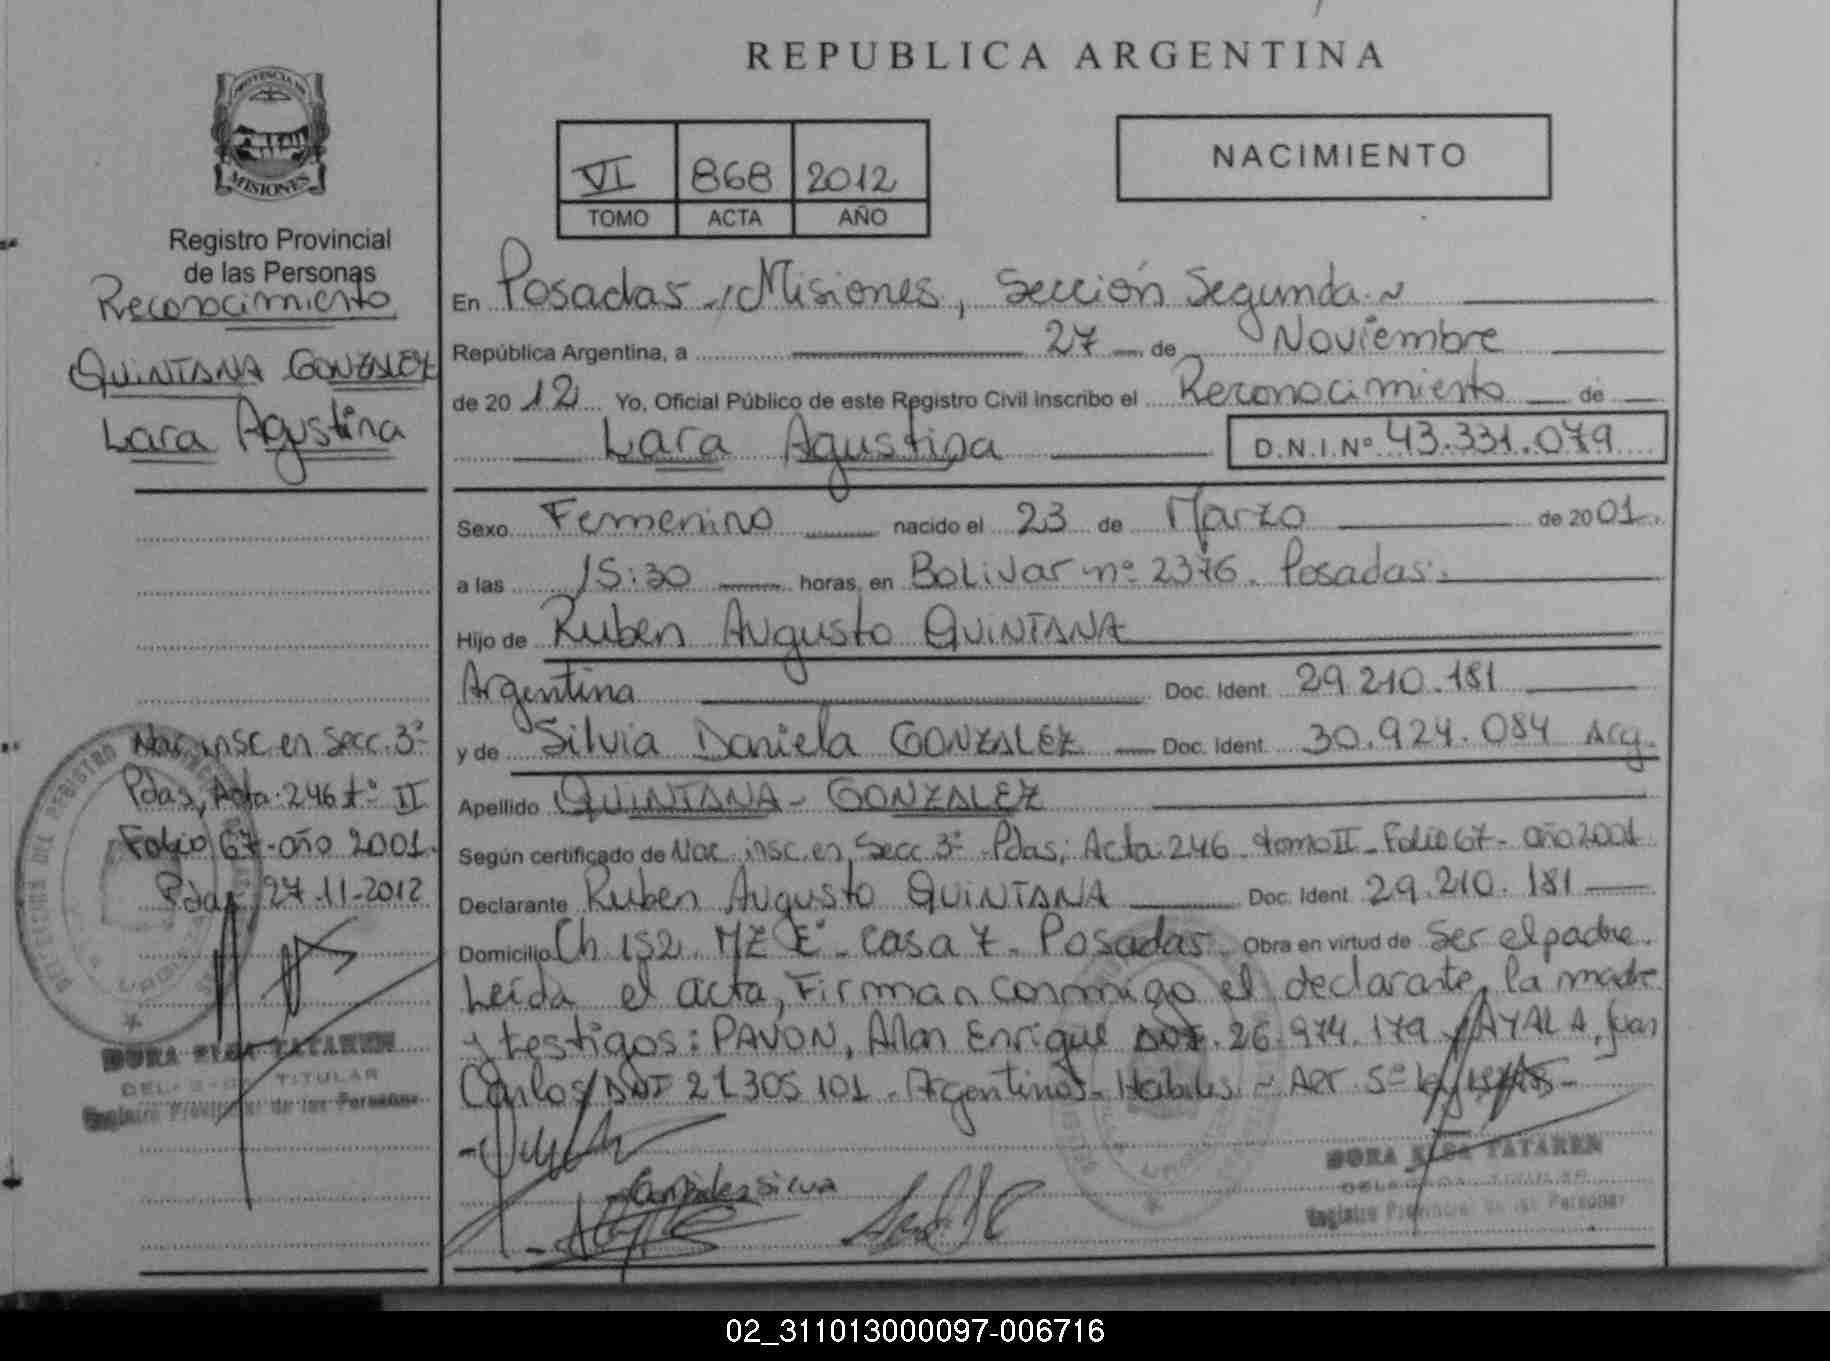 REPUBLICA ARGENTINA
PROVINCIA DE
MISIONES
Registro Provincial
de las Personas
Reconocimiento
QUINTANA GONZALEZ
Lara Agustina
Nac. insc. en Secc. 3ª
Pdas, Acta. 246 tº II
Folio 67 - año 2001.
Pdas 27-11-2012
DORA ELSA TATAREN
DELEGADA TITULAR
Registro Provincial de las Personas
VI 868 2012
TOMO ACTA AÑO
NACIMIENTO
En Posadas, Misiones, Sección Segunda.~
República Argentina, a 27 de Noviembre
de 2012 Yo, Oficial Público de este Registro Civil inscribo el Reconocimiento de
Lara Agustina D.N.I.Nº 43.331.079
Sexo Femenino nacido el 23 de Marzo de 2001.
a las 15:30 horas, en Bolivar nº 2376. Posadas.
Hijo de Ruben Augusto QUINTANA
Argentina Doc. Ident. 29.210.181
y de Silvia Daniela GONZALEZ Doc. Ident. 30.924.084 Arg.
Apellido QUINTANA - GONZALEZ
Según certificado de Nac. insc. en Secc. 3ª - Pdas; Acta. 246 - tomo II - Folio 67 - año 2001
Declarante Ruben Augusto QUINTANA Doc. Ident. 29.210.181
Domicilio Ch 152. MZ E - casa 7 - Posadas. Obra en virtud de Ser el padre.
Leída el acta, Firman conmigo el declarante, la madre
y testigos: PAVON, Alan Enrique DNI. 26.974.179 y AYALA, Juan
Carlos DNI 27.305.101 - Argentinos - Hábiles ~
Gonzalez Silvia
DORA ELSA TATAREN
DELEGADA TITULAR
Registro Provincial de las Personas
02_311013000097-006716